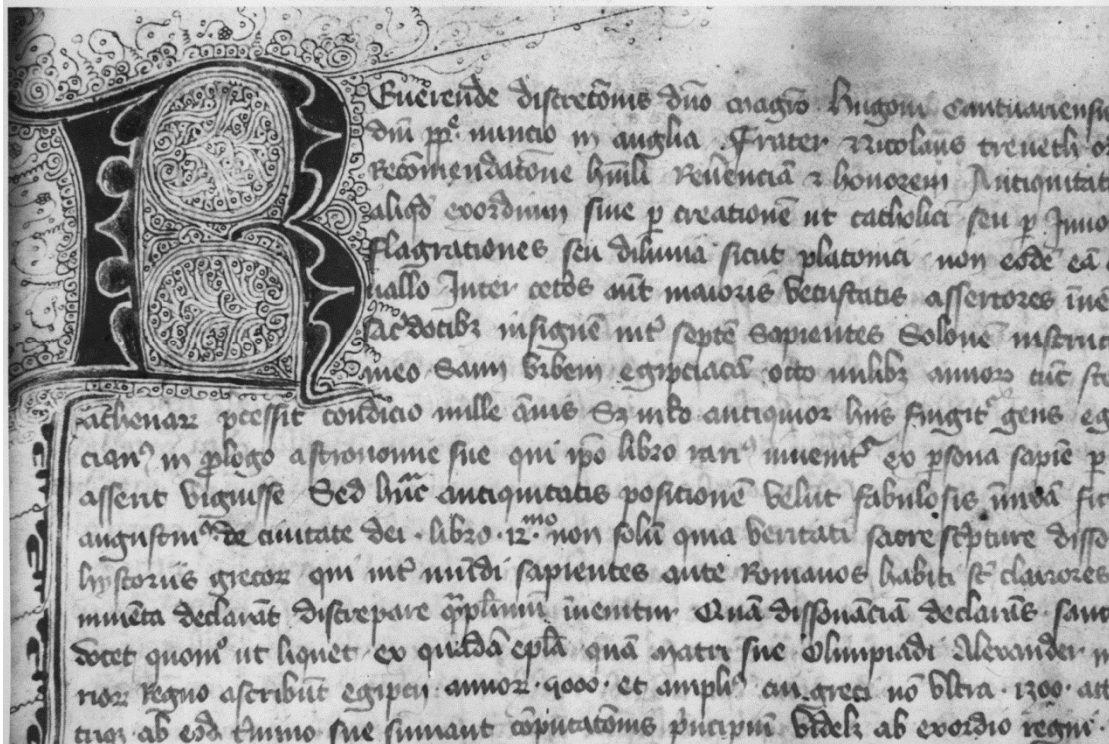 Reuerende discretōnis dño magrō hugoni Cantuariensi
diū pp̄e nuncio in anglia ffrater Nicolaus treueth o
Recōmendatōne hūili Reūenciā ⁊ honorem Antiquitat
aliqd̄ exordium siue p̄ creationē ut catholici seu p̄
fflagrationes seu diluuia sicut platonici non eodē eā
uallo Inter cetos aūt maioris vetustatis assertores inue
sac̄dotibꝫ insignē int̄ septē Sapientes Solonē instruc
meo Saim vrbem egipciacā octo milibꝫ annoꝝ tūc
athenaꝝ p̄cessit condicio mille ānis Sꝫ m̄lto antiquior hiis fingit᷑ gens eg
cianꝰ in p̄logo astronomie sue qui ip̄o libro inuenit᷑ ex p̄sona sapiē
asserit viguisse Sed hāc antiquitatis positionē velut fabulosis
augustinꝰ de ciuitate dei · libro · 12mo · non solū quia veritati sacre sc̄pture disso
hystoriis grecoꝝ qui int̄ mūdi sapientes ante Romanos habiti st̄ clariores
inuēta declarāt discrepare q̄mplimū inuenitur Quā dissonāciā declarās sanc
docet quomo ut liquet ex quadā epl̄a quā matri sue Olimpiadi Alexander
rior Regno ascribūt egipcii annoꝝ · 5000 · et ampliꝰ cū greci nō vltra · 1300 ·
ab eod̄ t̄mino sue sumant cōputatōnis p̄ncipiū videlꝫ ab exordio regni